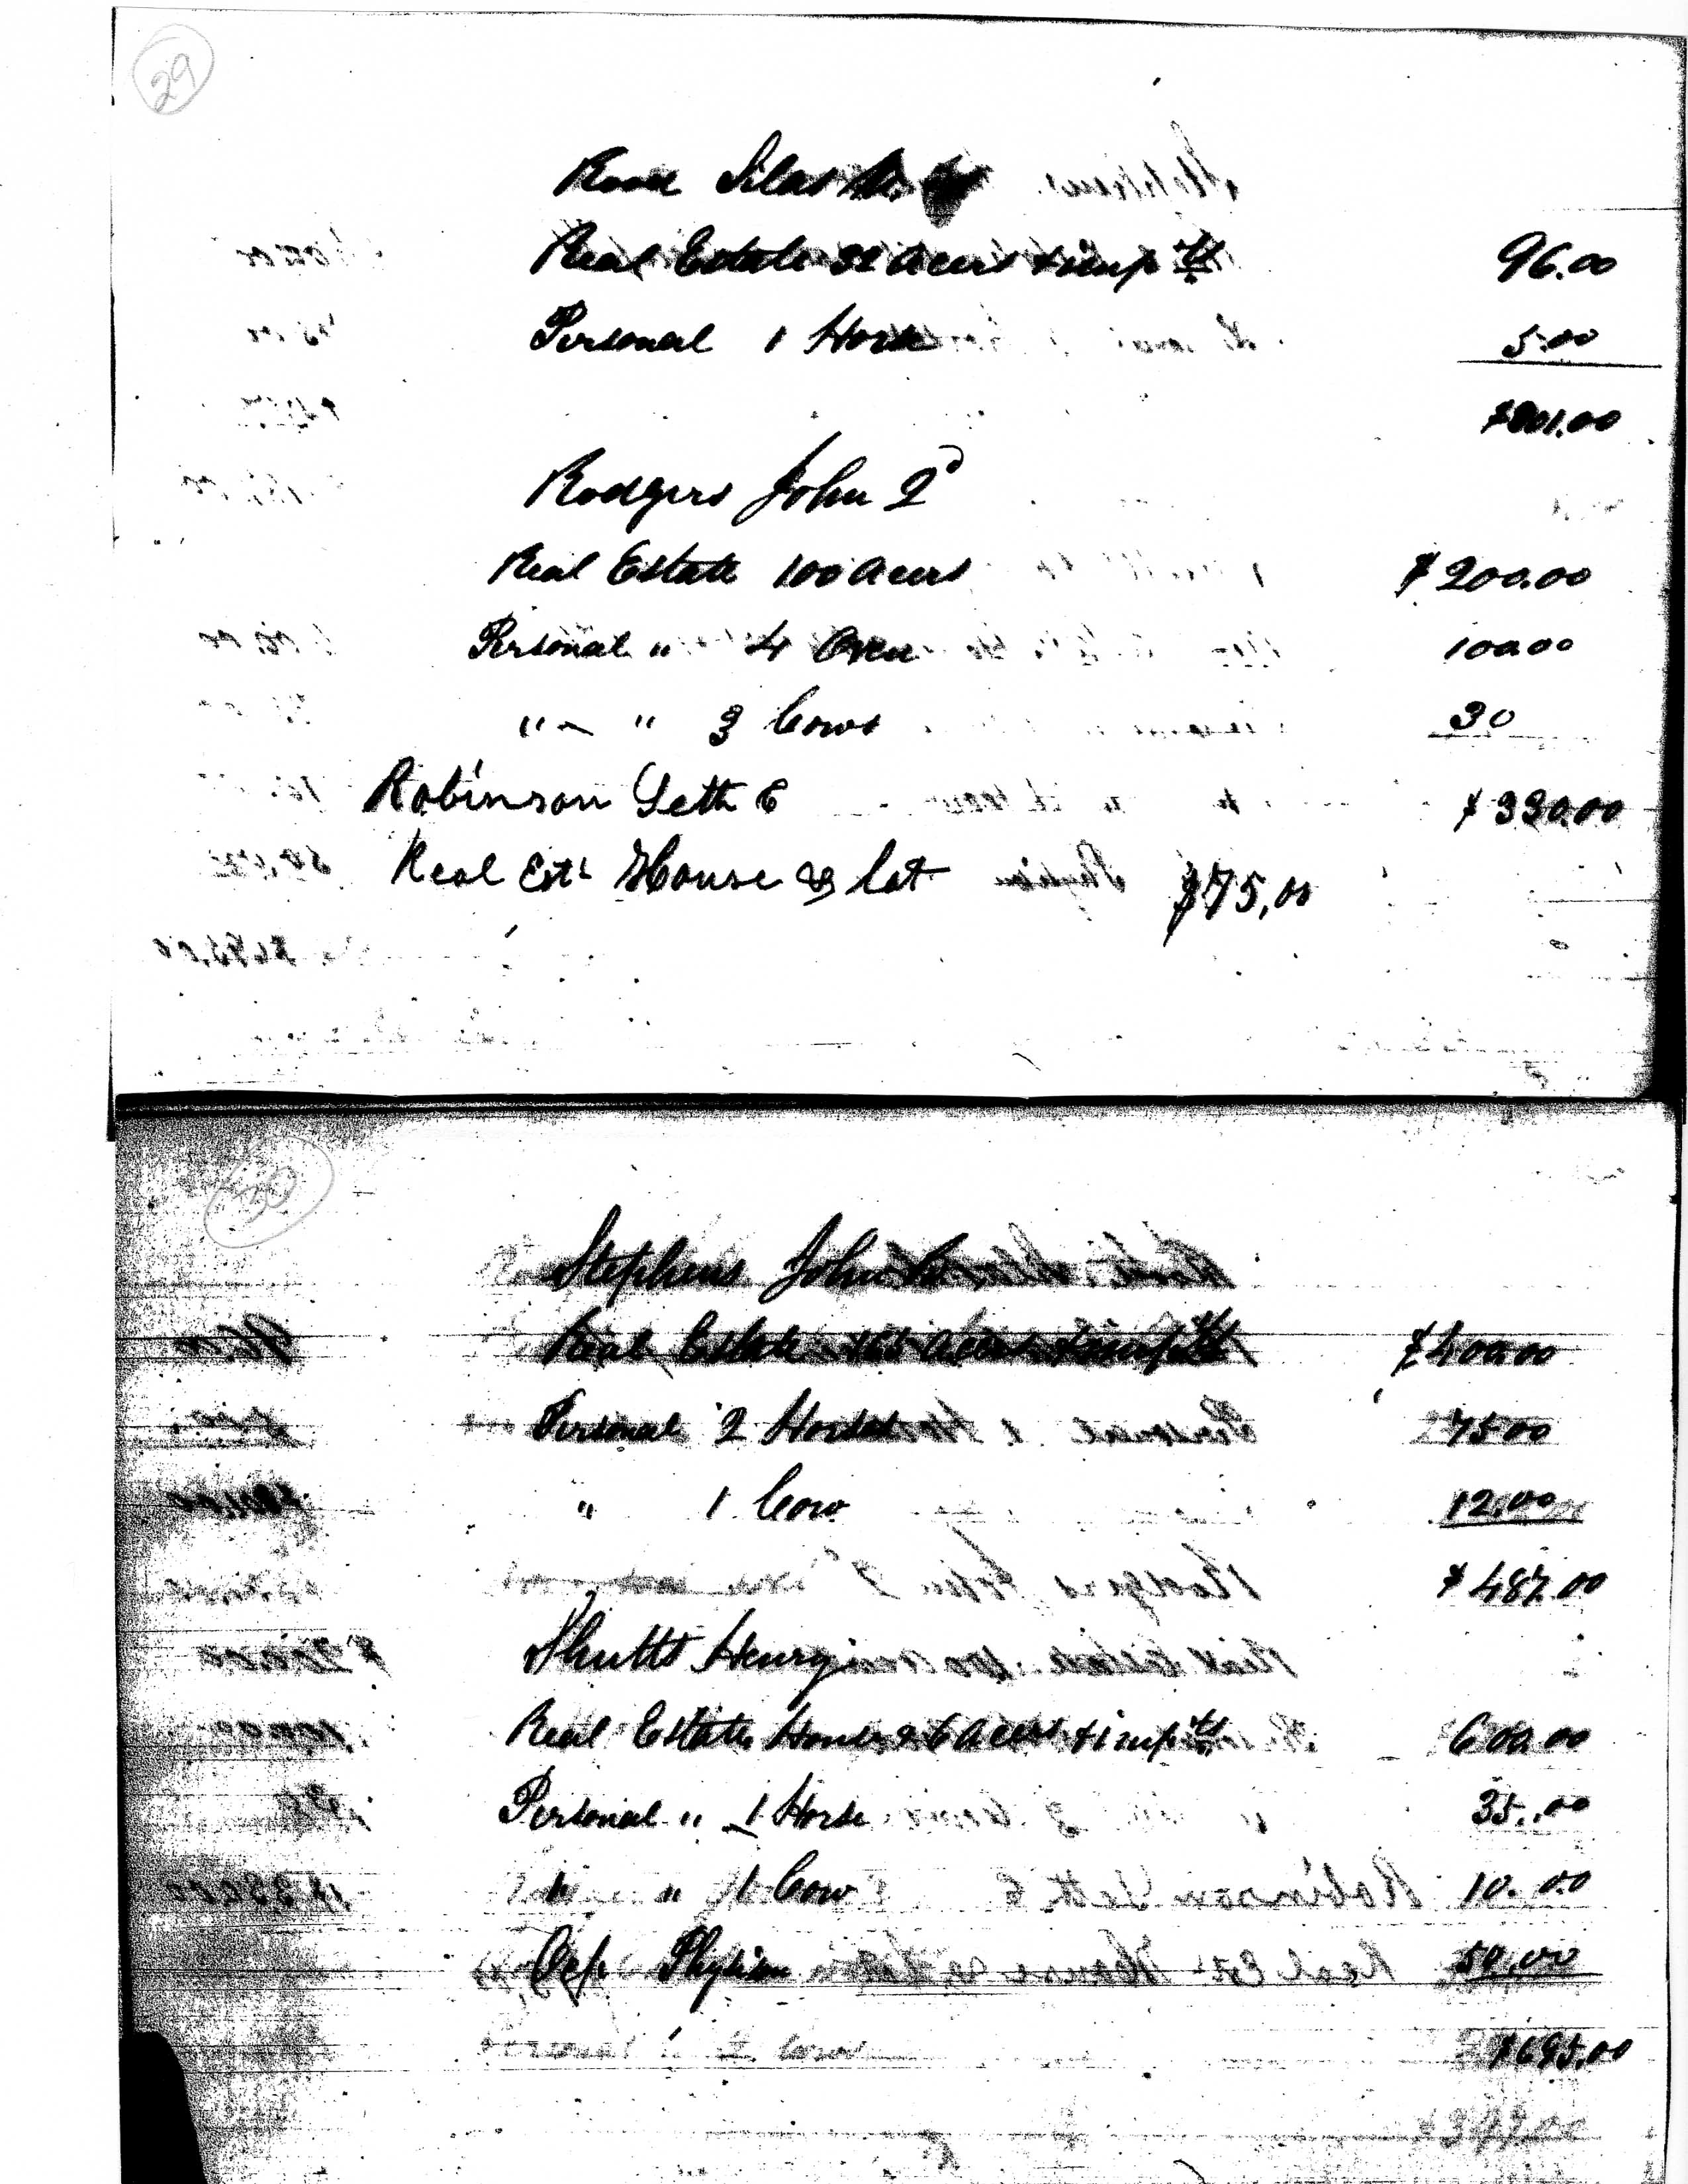 29
Silas
Real Estate 32 Acers & imp ts 96.00
Personal 1 Horse 5.00
01.00
Rodgers John 2d
Real Estate 100 Acers $200.00
Personal " 4 Oxen 100.00
" " 3 Cows 30
Robinson Seth E $330.00
Real Est. House & lot $75,00
30
Stephens John
Real Estate Acers & imp ts $400.00
Personal 2 Horses 75.00
" 1 Cow 12.00
$487.00
Shutts Henry
Real Estate House & 6 Acers & imp ts 600.00
Personal " 1 Horse 35.00
" " 1 Cow 10.00
Physician 50.00
$695.00